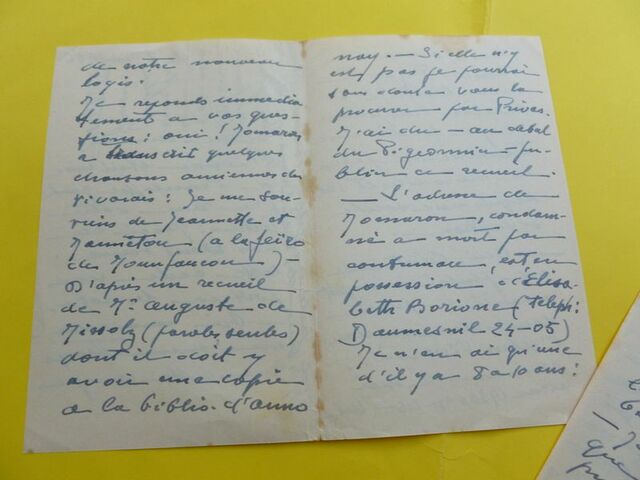 de notre nouveau
logis.
Je reponds immédia
tement a vos ques-
tions: oui!
a quelques
chansons anciennes du
vivarais: Je me sou-
viens de Jeannette et
(a la feïro
de Mounfaucon) -
D'après un recueil
de Mr auguste de
Missolz (paroles seules)
dont il doit y
avoir une copie
a la biblio. d'anno
nay. - Si elle n'y
est pas je pourrai
sans doute vous la
procurer par Privas.
J'ai du - au début
du pu-
blier ce recueil.
- L'adresse de
condam-
né a mort par
contumace, est en
possession d'Elisa-
beth Borione (teleph:
Daumesnil 24-05)
Je n'en ai qu'une
d'il y a 8 a 10 ans:
que